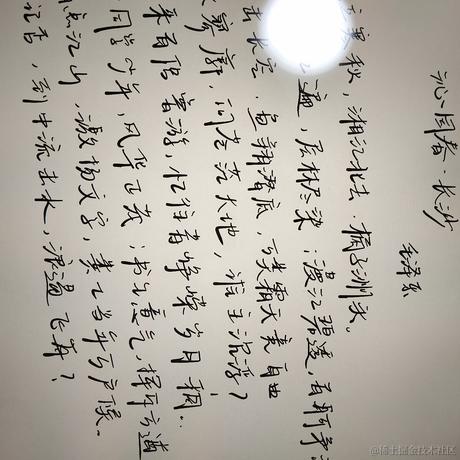 沁园春·长沙
毛泽东
寒秋，湘江北去，橘子洲头。
遍，层林尽染；漫江碧透，百舸争
击长空，鱼翔潜底，万类霜天竞自由
寥廓，问苍茫大地，谁主沉浮？
来百侣曾游，忆往昔峥嵘岁月稠..
同学少年，风华正茂；书生意气，挥斥方遒
点江山，激扬文字，粪土当年万户侯.
记否，到中流击水，浪遏飞舟？
@稀土掘金技术社区